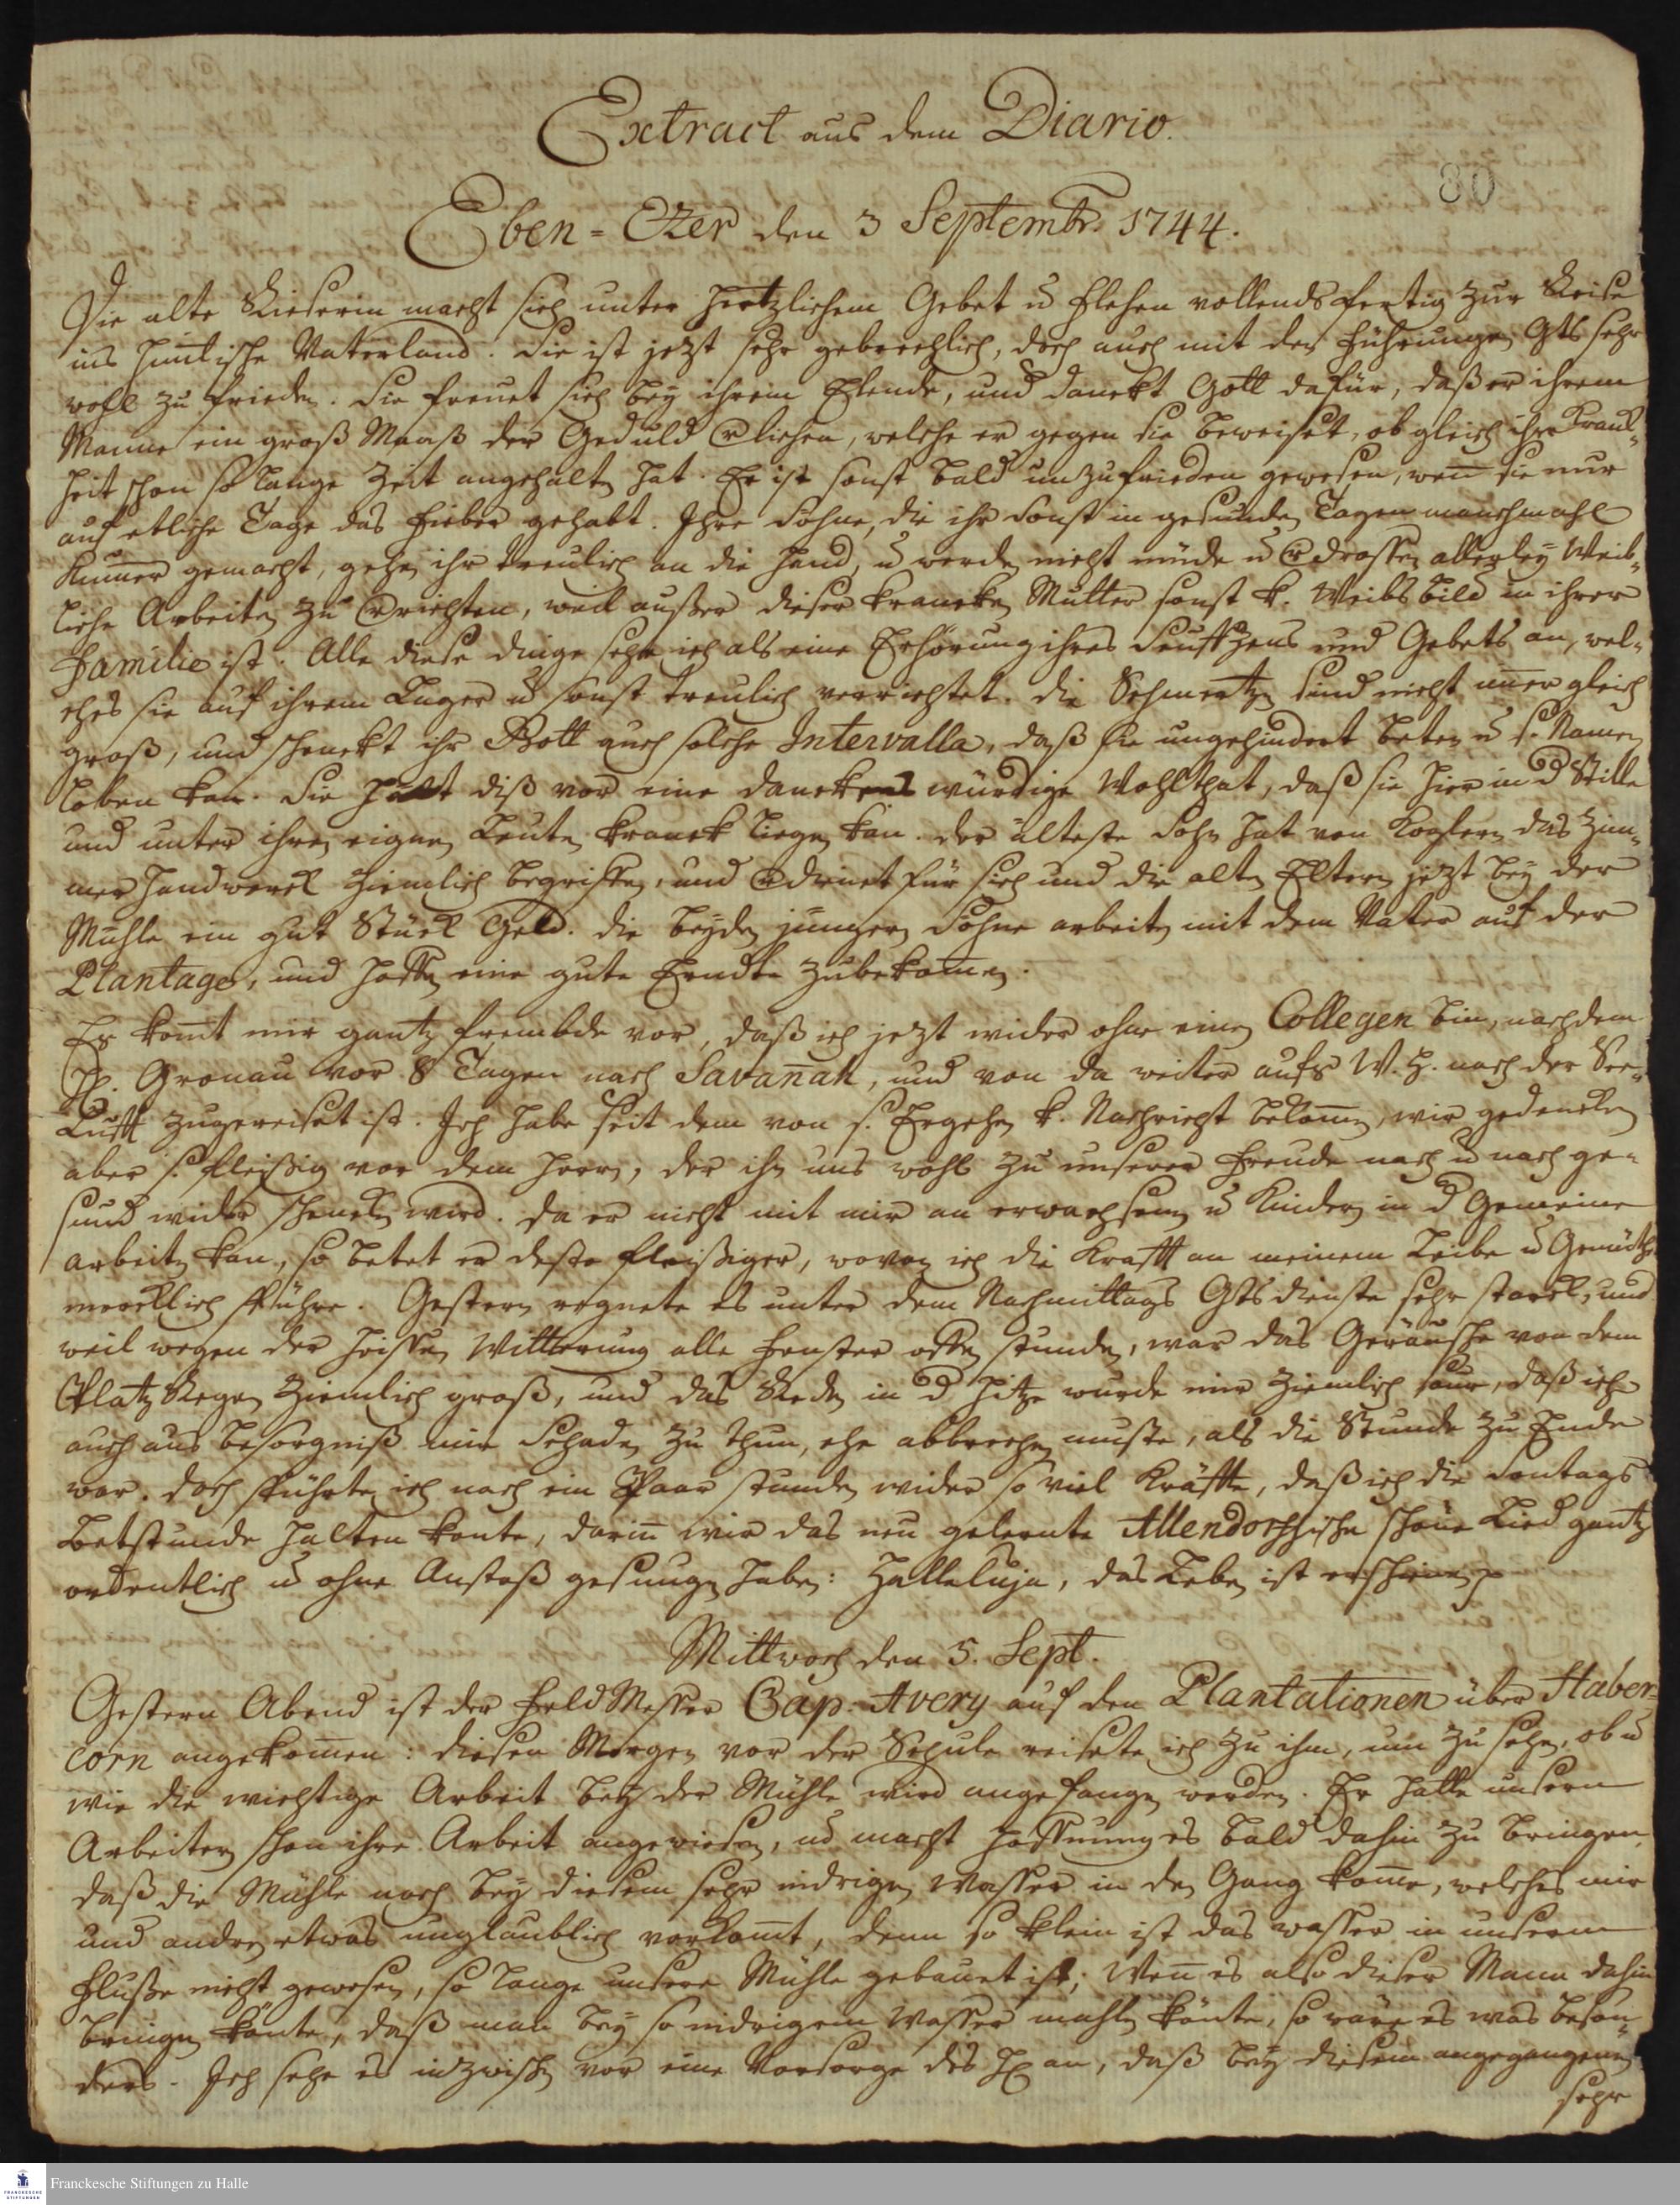 Extract aus dem Diario.
80
Eben-Ezer den 3 Septembr. 1744.
Die alte Rieserin macht sich unter hertzlichem Gebet u Flehen vollends fertig zur Reise
ins himlische Vaterland. Sie ist jetzt sehr gebrechlich, doch auch mit den Führungen Gts sehr
wohl zu frieden. Sie freuet sich bey ihrem Elende, und danckt Gott dafür, daß er ihrem
Manne ein groß Maaß der Geduld verliehen, welche er gegen sie beweiset, ob gleich ihre Kranck-
heit schon so lange Zeit angehalten hat. Er ist sonst bald unzufrieden gewesen, wen sie nur
auf etliche Tage das Fieber gehabt. Ihre Söhne, die ihr sonst in gesunden Tagen manchmahl
Kumer gemacht, gehen ihr treulich an die Hand, u werden nicht müde u verdrossen allerley Weib-
liche Arbeiten zu verrichten, weil außer dieser krancken Mutter sonst k. Weibsbild in ihrer
Familie ist. Alle diese Dinge sehe ich als eine Erhörung ihres Seufftzens und Gebets an, wel-
ches sie auf ihrem Lager u sonst treulich verrichtet. Die Schmertzen sind nicht imer gleich
groß, und schenckt ihr Gott auch solche Intervalla, daß sie ungehindert beten u s. Namen
loben kan. Sie hält diß vor eine danckens würdige Wohlthat, daß sie hier in d Stille
und unter ihren eignen Leuten kranck liegen kan. Der älteste Sohn hat von Koglern das Zim-
mer Handwerck ziemlich begriffen, und verdienet für sich und die alten Eltern jetzt bey der
Mühle ein gut Stück Geld. Die beyden jüngern Söhne arbeiten mit dem Vater auf der
Plantage, und hoffen eine gute Erndte zubekomen.
Es komt mir gantz frembde vor, daß ich jetzt wider ohne einen Collegen bin, nachdem
H. Gronau vor 8 Tagen nach Savanah, und von da weiter aufs W. H. nach der See-
Lufft zugereiset ist. Ich habe seit dem von s. Ergehen k. Nachricht bekomen, wir gedencken
aber s. fleißig vor dem Herrn, der ihn uns wohl zu unserer Freude nach u nach ge-
sund wider schencken wird. Da er nicht mit mir an erwachsenen u Kindern in d Gemeine
arbeiten kan, so betet er desto fleißiger, wovon ich die Krafft an meinem Leibe u Gemüthe
mercklich spühre. Gestern regnete es unter dem Nachmittags Gtsdienste sehr starck, und
weil wegen der heissen Witterung alle Fenster offen stunden, war das Geräusche von dem
Platz Regen ziemlich groß, und das Reden in d Hitze wurde mir ziemlich saur, daß ich
auch aus besorgniß mir Schaden zu thun, ehe abbrechen muste, als die Stunde zu Ende
war. Doch spührte ich nach ein Paar stunden wider so viel Kräffte, daß ich die Sontags
Betstunde halten konte, darin wir das neu gelernte Allendorffische schöne Lied gantz
ordentlich u ohne Anstoß gesungen haben: Halleluja, das Leben ist erschienen p
Mittwoch den 5. Sept.
Gestern Abend ist der FeldMesser Cap. Avery auf den Plantationen über Haber-
corn angekomen: diesen Morgen vor der Schule reisete ich zu ihm, um zu sehen, ob u
wie die wichtige Arbeit bey der Mühle wird angefangen werden. Er hatte unsern
Arbeitern schon ihre Arbeit angewiesen, ud macht Hoffnung es bald dahin zu bringen,
daß die Mühle noch bey diesem sehr nidrigen Wasser in den Gang komme, welches mir
und andren etwas unglaublich vorkomt, denn so klein ist das wasser in unserm
Flusse nicht gewesen, so lange unsere Mühle gebauet ist; Wen es also dieser Mann dahin
bringen konte, daß man bey so nidrigem Wasser mahlen könte, so wäre es was beson-
ders. Ich sehe es indzwischen vor eine Vorsorge des H an, daß bey diesem angegangenen
sehr
Franckesche Stiftungen zu Halle